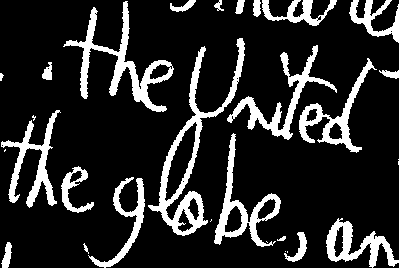 the United
the globe, an